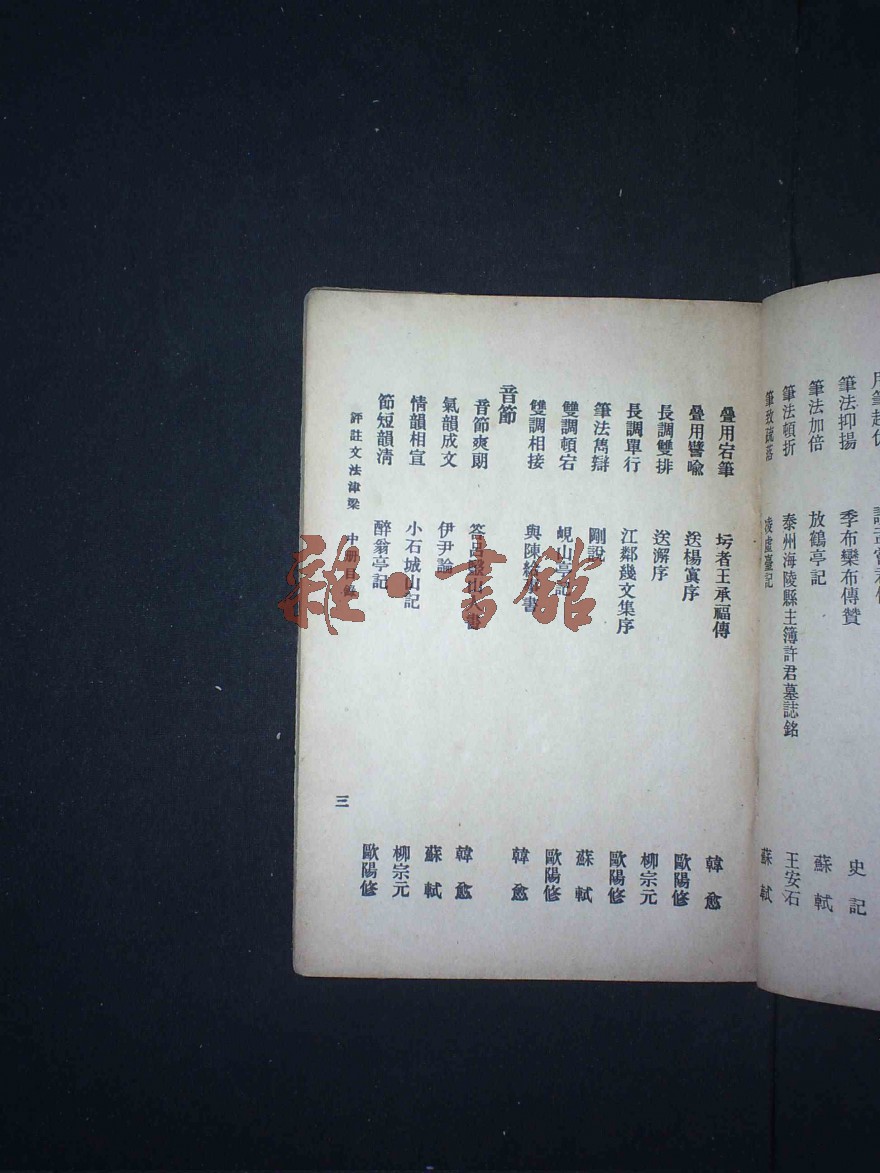 筆法抑揚 季布欒布傳贊 史記
筆法加倍 放鶴亭記 蘇軾
筆法頓折 泰州海陵縣主簿許君墓誌銘 王安石
筆致疏落 凌虛臺記 蘇軾
疊用宕筆 圬者王承福傳 韓愈
疊用譬喻 送楊寘序 歐陽修
長調雙排 送澥序 柳宗元
長調單行 江鄰幾文集序 歐陽修
筆法雋辯 剛說 蘇軾
雙調頓宕 峴山亭記 歐陽修
雙調相接 與陳給事書 韓愈
音節
音節爽朗 答呂毉山人書 韓愈
氣韻成文 伊尹論 蘇軾
情韻相宣 小石城山記 柳宗元
節短韻清 醉翁亭記 歐陽修
評註文法津梁 中冊目錄 三
雜·書館